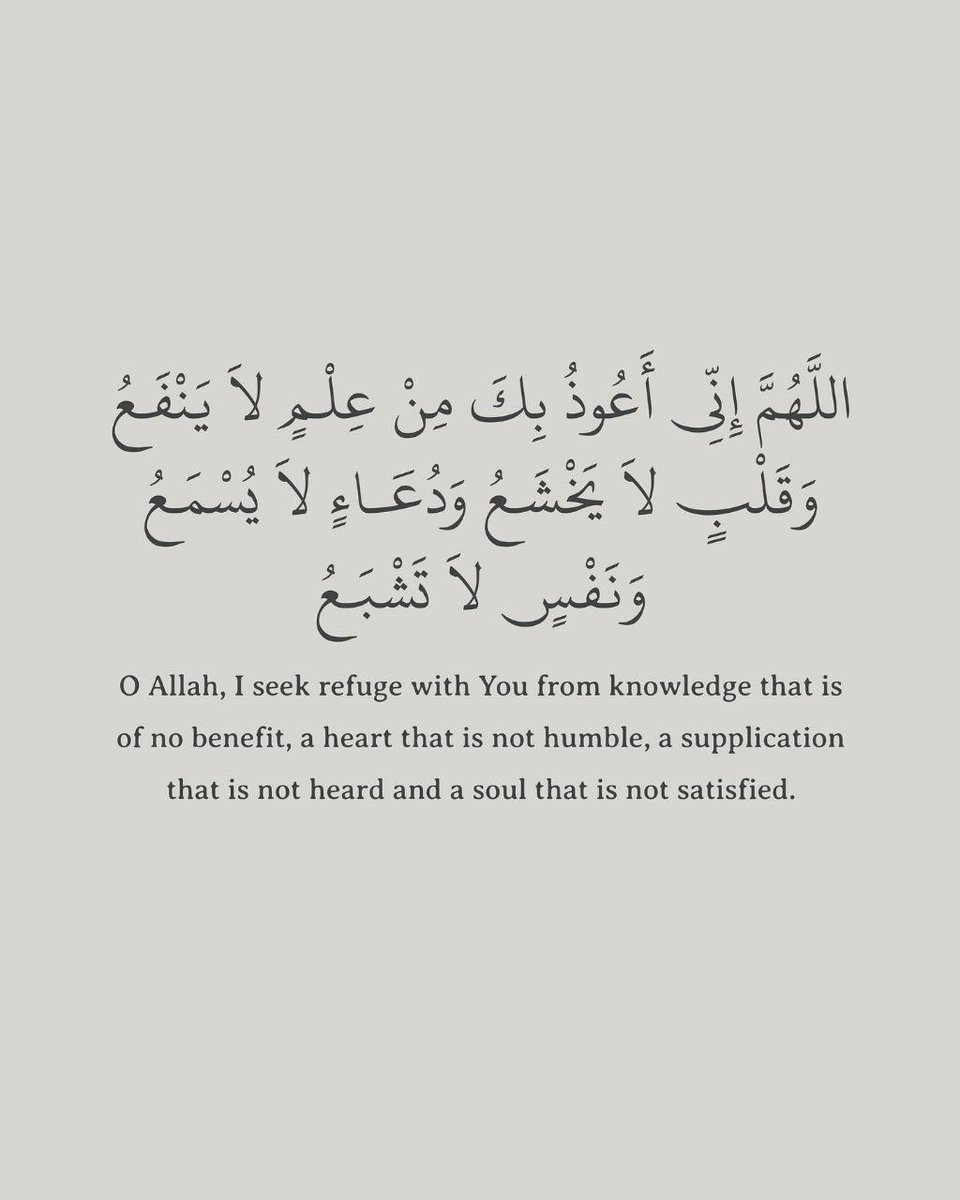 اللَّهُمَّ إِنِّى أَعُوذُ بِكَ مِنْ عِلْمٍ لاَ يَنْفَعُ
وَقَلْبٍ لاَ يَخْشَعُ وَدُعَاءٍ لاَ يُسْمَعُ
وَنَفْسٍ لاَ تَشْبَعُ
O Allah, I seek refuge with You from knowledge that is
of no benefit, a heart that is not humble, a supplication
that is not heard and a soul that is not satisfied.